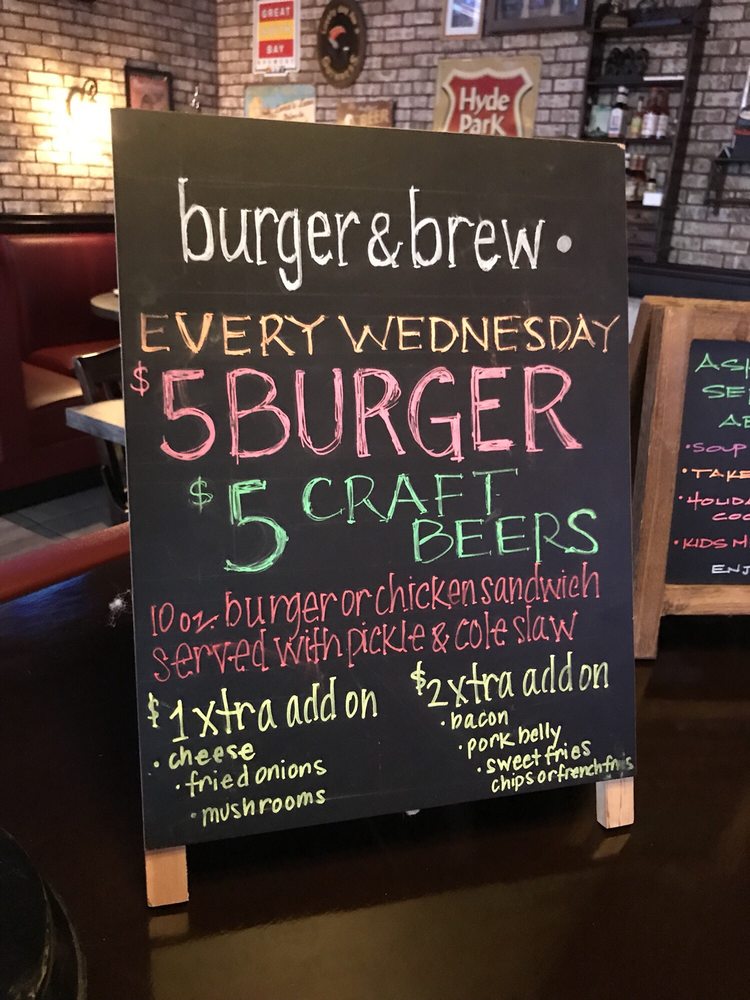 GREAT
BAY
Hyde
Park
burger & brew.
EVERY WEDNESDAY
$5 BURGER
$5 CRAFT
BEERS
10 oz. burger or chicken sandwich
served with pickle & cole slaw
$1 xtra add on
• cheese
• fried onions
• mushrooms
$2 xtra add on
• bacon
• pork belly
• sweet fries
chips or french fries
• SOUP
• KIDS